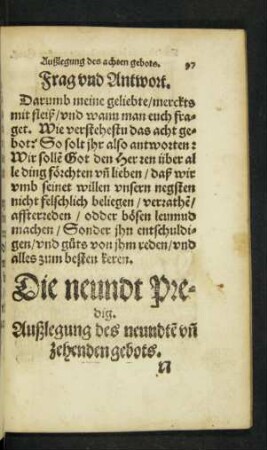 Außlegung des achten gebots. 97
Frag vnd Antwort.
Darumb meine geliebte/merckts
mit fleiß/vnd wann man euch fra-
get. Wie verstehestu das acht ge-
bot? So solt jhr also antworten:
Wir sollē Got den Herren über al
le ding förchten vñ lieben/daß wir
vmb seinet willen vnsern negsten
nicht felschlich beliegen/verrathē/
affterreden/odder bösen leumud
machen/Sonder jhn entschuldi-
gen/vnd gůts von jhm reden/vnd
alles zum besten keren.
Die neundt Pre-
dig.
Außlegung des neundtē vñ
zehenden gebots.
N